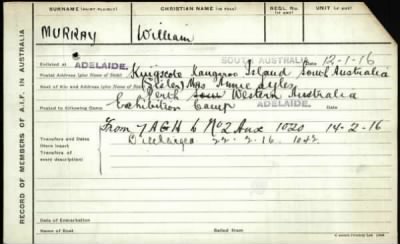 SURNAME (IN BLOCK LETTERS) CHRISTIAN NAME (IN FULL) REGTL. No.
MURRAY William
Enlisted at ADELAIDE. SOUTH AUSTRALIA Date 12-1-16
Postal Address Kingscote Kangaroo Island South Australia
Next of Kin and Address (Sister) Mrs Annie Sykes
Perth Western Australia
ADELAIDE.
Posted to following Camp Exhibition Camp
From 7 AGH to No2 Aux 1020 14-2-16
Transfers and Dates Discharged 22-2-16 1042
(Here insert
Transfers of
every description)
Date of Embarkation
Name of Boat Sailed from
RECORD OF MEMBERS OF A.I.F. IN AUSTRALIA